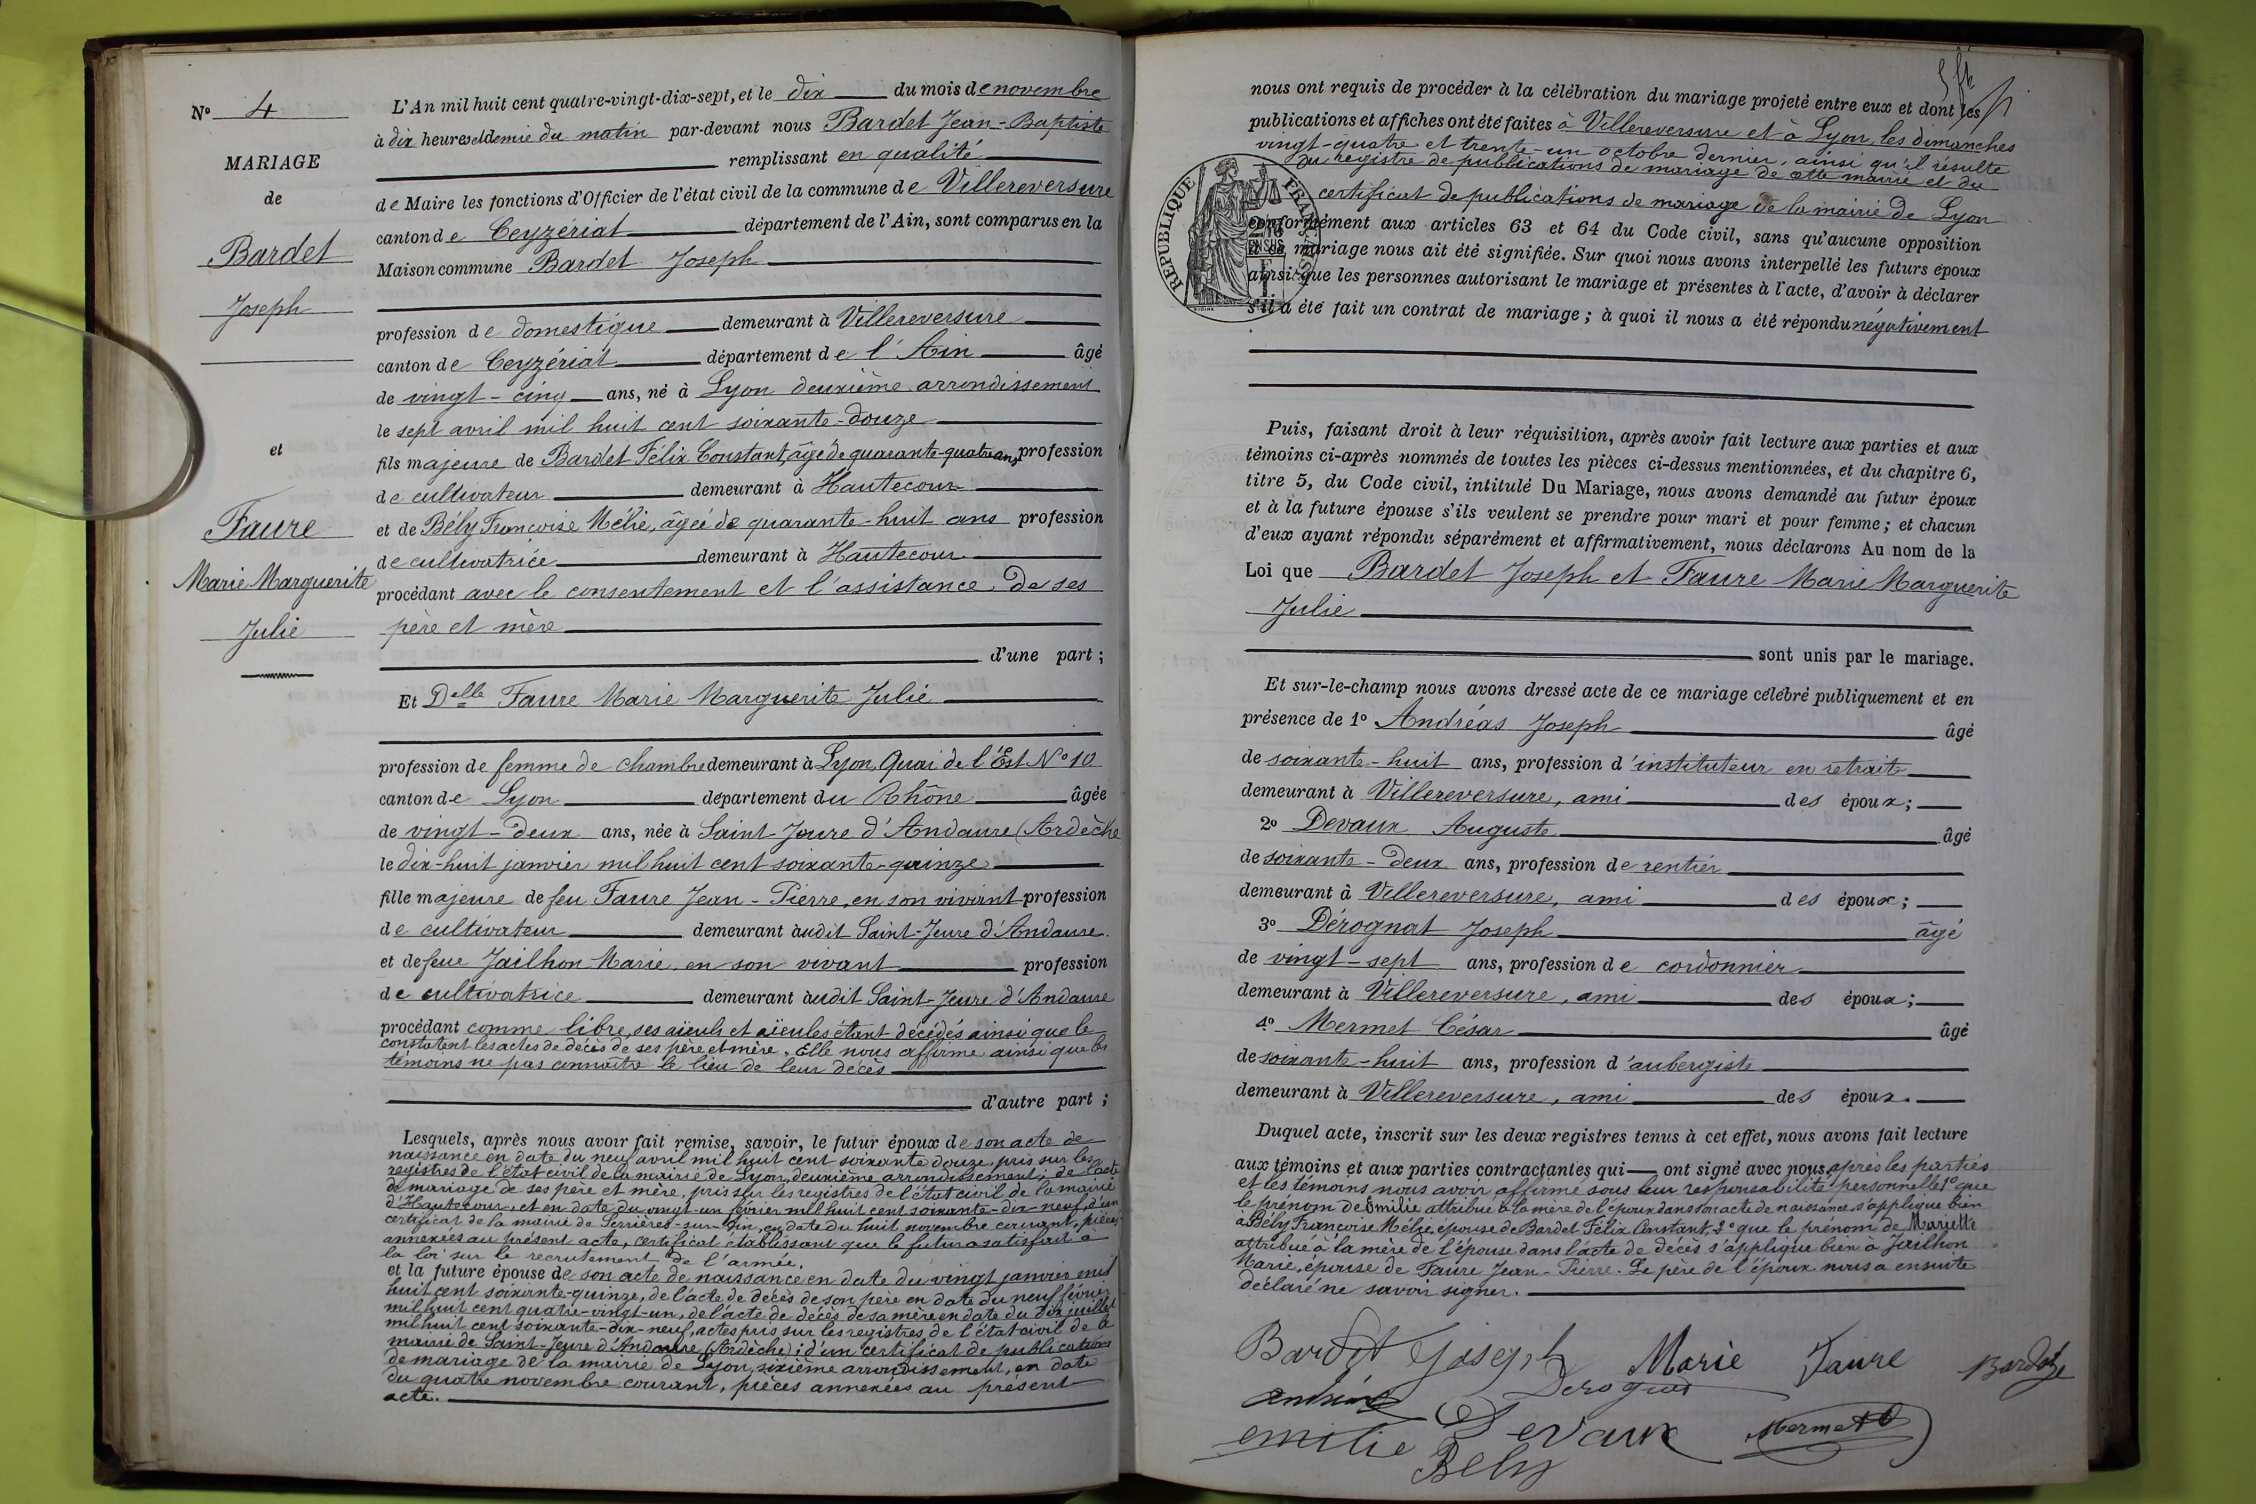 No 4
MARIAGE
de
Bardet
Joseph
et
Faure
Marie Marguerite
Julie
L'An mil huit cent quatre-vingt-dix-sept, et le dix du mois de novembre
à dix heures et demie du matin par-devant nous Bardet Jean-Baptiste
remplissant en qualité
de Maire les fonctions d'Officier de l'état civil de la commune de Villereversure
canton de Ceyzériat département de l'Ain, sont comparus en la
Maison commune Bardet Joseph
profession de domestique demeurant à Villereversure
canton de Ceyzériat département de l'Ain âgé
de vingt-cinq ans, né à Lyon deuxième arrondissement
le sept avril mil huit cent soixante-douze
fils majeure de Bardet Félix Constant, âgé de quarante-quatre ans, profession
de cultivateur demeurant à Hautecour
et de Bély Françoise Mélie, âgée de quarante-huit ans profession
de cultivatrice demeurant à Hautecour
procédant avec le consentement et l'assistance de ses
père et mère
d'une part ;
Et Delle Faure Marie Marguerite Julie
profession de femme de chambre demeurant à Lyon, Quai de l'Est No 10
canton de Lyon département du Rhône âgée
de vingt-deux ans, née à Saint-Jeure d'Andaure (Ardèche
le dix-huit janvier mil huit cent soixante-quinze
fille majeure de feu Faure Jean-Pierre, en son vivant profession
de cultivateur demeurant audit Saint-Jeure d'Andaure
et de feue Jailhon Marie, en son vivant profession
de cultivatrice demeurant audit Saint-Jeure d'Andaure
procédant comme libre, ses aïeuls et aïeules étant décédés ainsi que le
constatent les actes de décès de ses père et mère. Elle nous affirme ainsi que les
témoins ne pas connaître le lieu de leur décès
d'autre part ;
Lesquels, après nous avoir fait remise, savoir, le futur époux de son acte de
naissance en date du neuf avril mil huit cent soixante douze, pris sur les
registres de l'état civil de la mairie de Lyon, deuxième arrondissement ; de l'acte
de mariage de ses père et mère, pris sur les registres de l'état civil de la mairie
d'Hautecour, et en date du vingt-un février mil huit cent soixante-dix-neuf, d'un
certificat de la mairie de Serrières-sur-Ain, en date du huit novembre courant, pièces
annexées au présent acte, certificat établissant que le futur a satisfait à
la loi sur le recrutement de l'armée.
et la future épouse de son acte de naissance en date du vingt janvier mil
huit cent soixante-quinze, de l'acte de décès de son père en date du neuf février
mil huit cent quatre-vingt-un, de l'acte de décès de sa mère en date du dix juillet
mil huit cent soixante-dix-neuf, actes pris sur les registres de l'état civil de la
mairie de Saint-Jeure d'Andaure (Ardèche) ; d'un certificat de publications
de mariage de la mairie de Lyon, sixième arrondissement, en date
du quatre novembre courant, pièces annexées au présent
acte.
nous ont requis de procéder à la célébration du mariage projeté entre eux et dont les
publications et affiches ont été faites à Villereversure et à Lyon, les dimanches
vingt-quatre et trente-un octobre dernier, ainsi qu'il résulte
du registre de publications de mariage de cette mairie et du
certificat de publications de mariage de la mairie de Lyon
RÉPUBLIQUE FRANÇAISE
conformément aux articles 63 et 64 du Code civil, sans qu'aucune opposition
mariage nous ait été signifiée. Sur quoi nous avons interpellé les futurs époux
ainsi que les personnes autorisant le mariage et présentes à l'acte, d'avoir à déclarer
s'il a été fait un contrat de mariage ; à quoi il nous a été répondu négativement
Puis, faisant droit à leur réquisition, après avoir fait lecture aux parties et aux
témoins ci-après nommés de toutes les pièces ci-dessus mentionnées, et du chapitre 6,
titre 5, du Code civil, intitulé Du Mariage, nous avons demandé au futur époux
et à la future épouse s'ils veulent se prendre pour mari et pour femme ; et chacun
d'eux ayant répondu séparément et affirmativement, nous déclarons Au nom de la
Loi que Bardet Joseph et Faure Marie Marguerite
Julie
sont unis par le mariage.
Et sur-le-champ nous avons dressé acte de ce mariage célébré publiquement et en
présence de 1o Andréas Joseph âgé
de soixante-huit ans, profession d'instituteur en retraite
demeurant à Villereversure, ami des époux ;
2o Devaux Auguste âgé
de soixante-deux ans, profession de rentier
demeurant à Villereversure, ami des époux ;
3o Dérognat Joseph âgé
de vingt-sept ans, profession de cordonnier
demeurant à Villereversure, ami des époux ;
4o Mermet César âgé
de soixante-huit ans, profession d'aubergiste
demeurant à Villereversure, ami des époux.
Duquel acte, inscrit sur les deux registres tenus à cet effet, nous avons fait lecture
aux témoins et aux parties contractantes qui ont signé avec nous, après les parties
et les témoins nous avoir affirmé sous leur responsabilité personnelle 1o que
le prénom de Emilie attribué à la mère de l'époux dans son acte de naissance s'applique bien
à Bély Françoise Mélie, épouse de Bardet Félix Constant, 2o que le prénom de Mariette
attribué à la mère de l'épouse dans l'acte de décès s'applique bien à Jailhon
Marie, épouse de Faure Jean-Pierre. Le père de l'époux nous a ensuite
déclaré ne savoir signer.
Bardet Joseph Marie Faure Bardet
Andréas Derognat
Devaux Mermet
emilie Bely